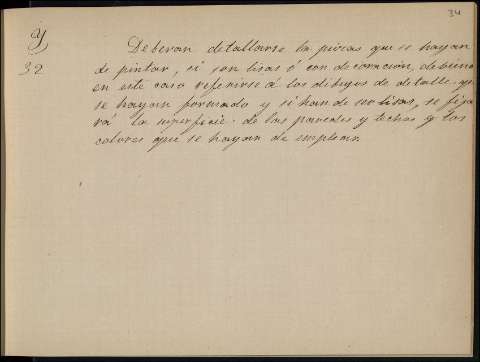 34
Y
Deberan detallarse la piezas que se hayan
32
de pintar, si son lisas ó con decoracion, debiendo
en este caso referirse á los dibujos de detalle que
se hayan formado y si han de ser lisas, se fija
rá la superficie de las paredes y techos y los
colores que se hayan de emplear.